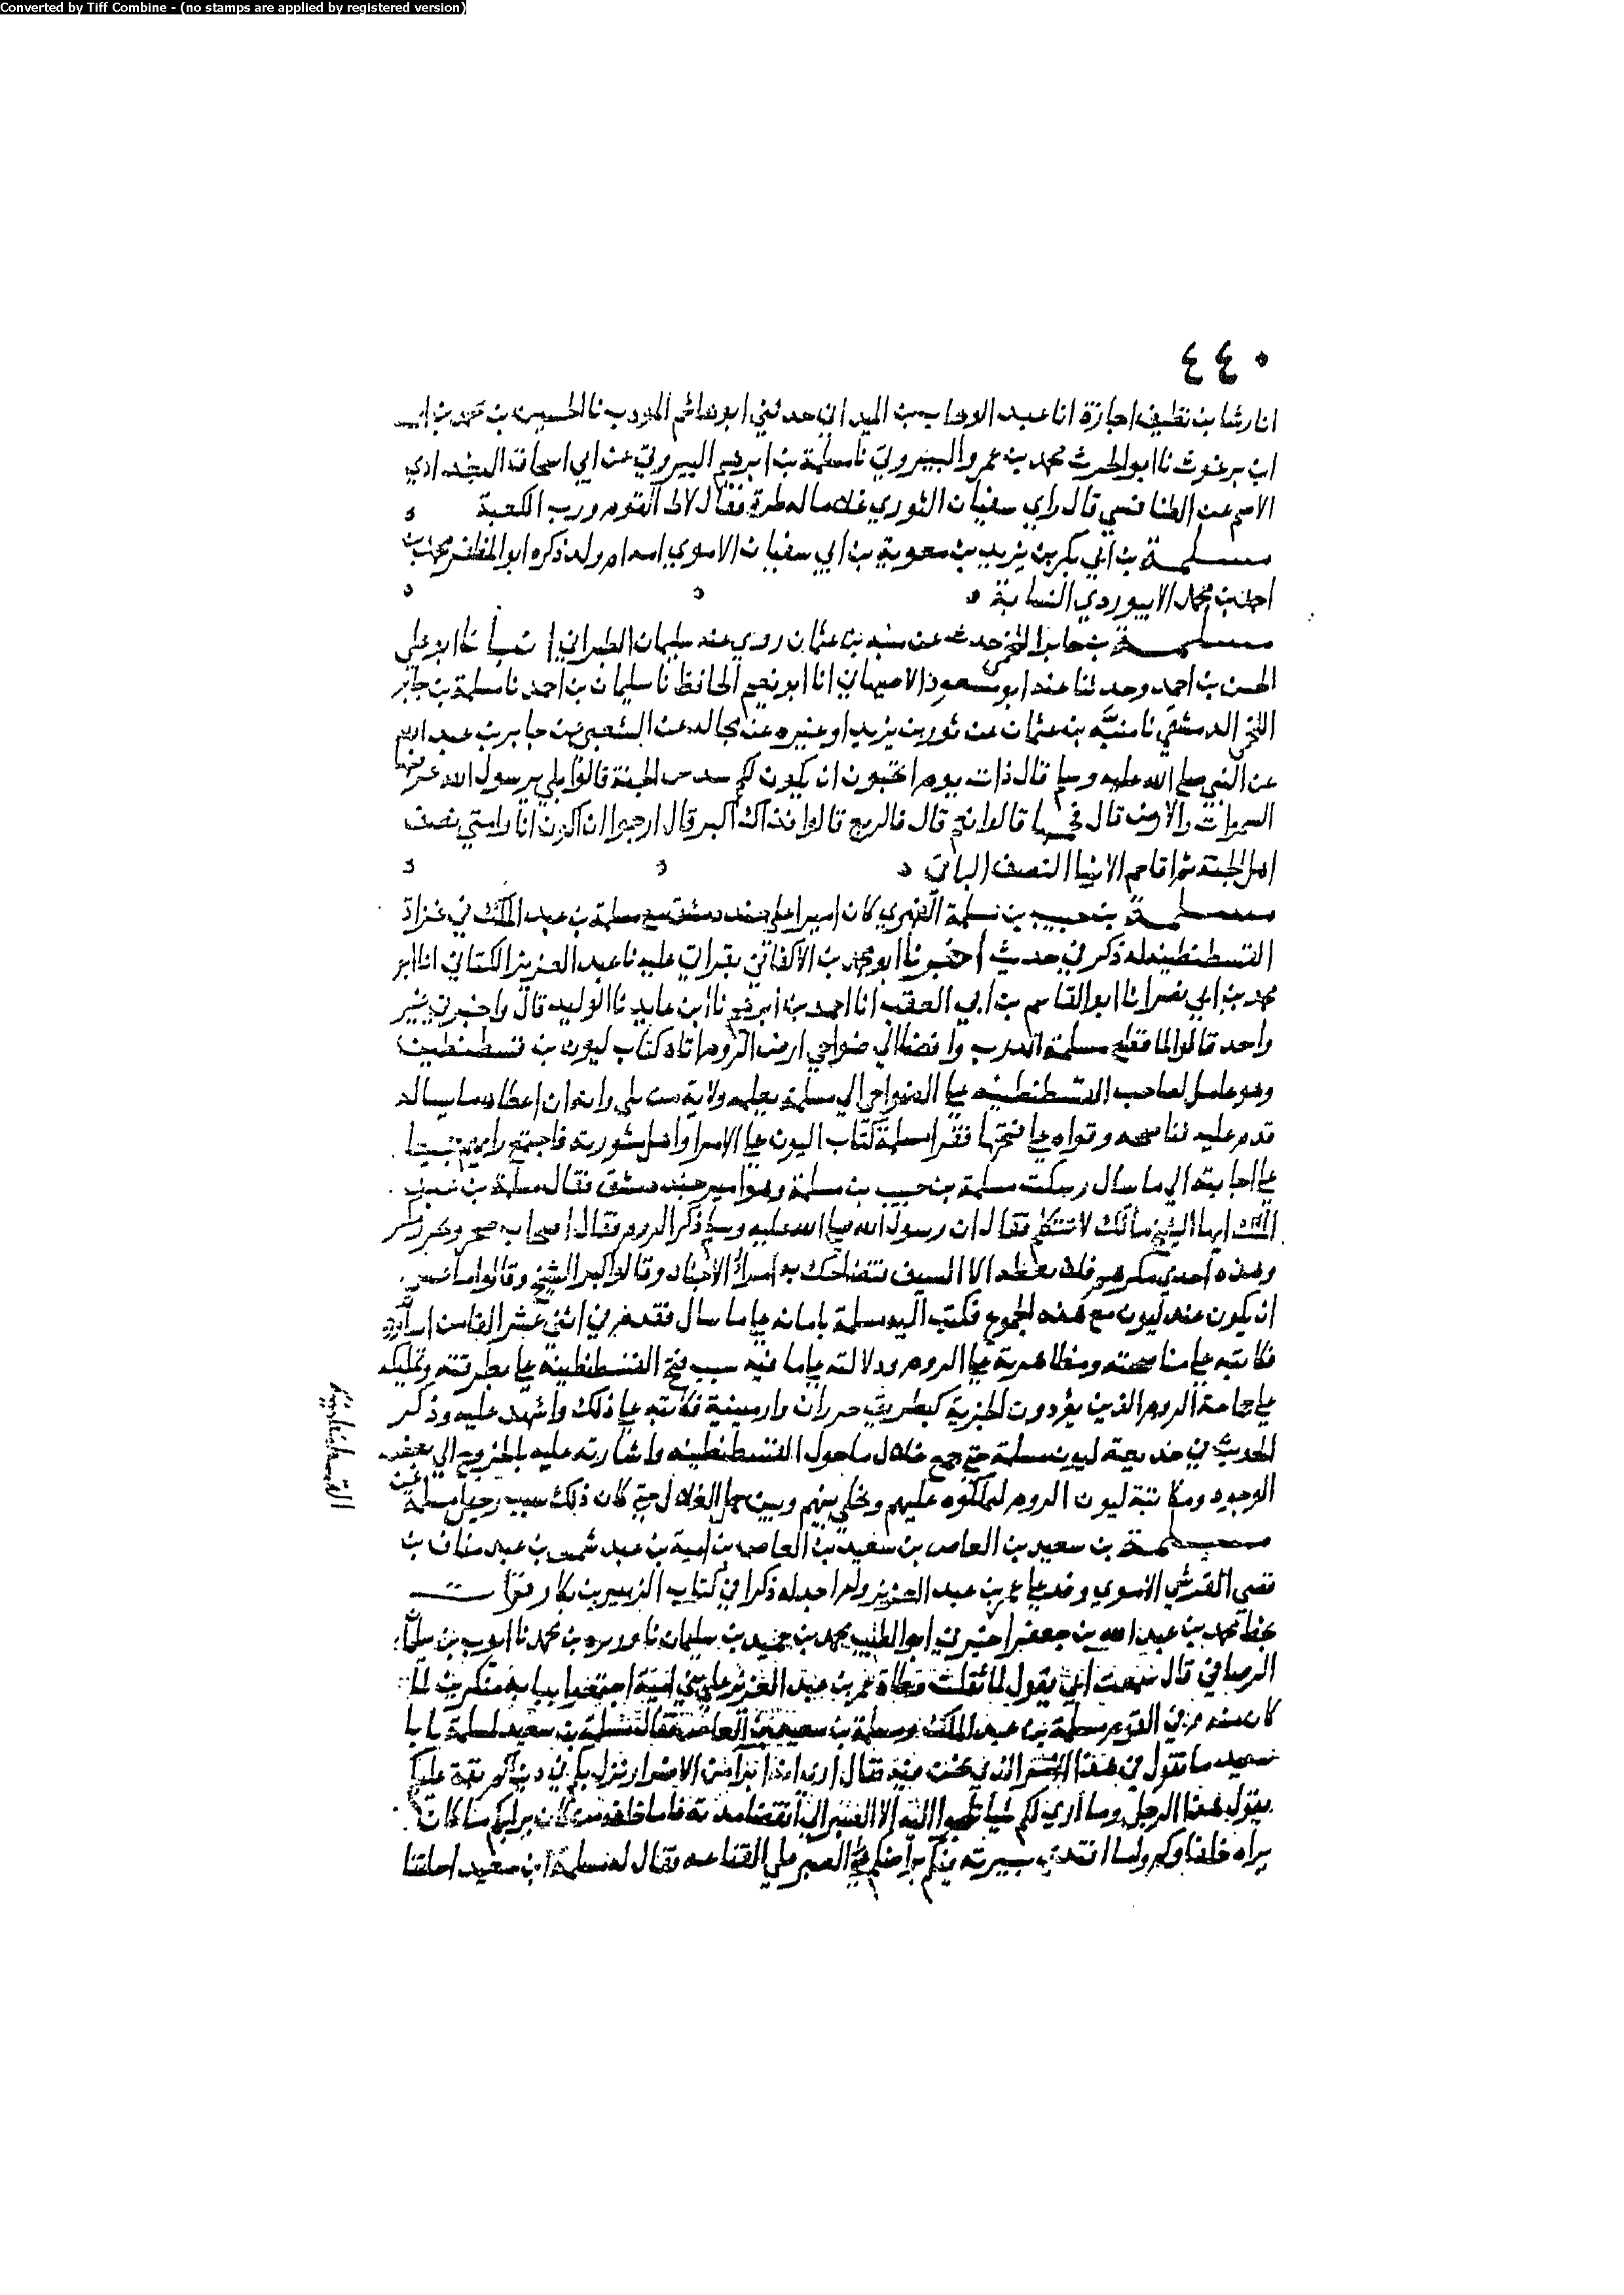 Converted by Tiff Combine - (no stamps are applied by registered version)
٤٤٠
انا رشا بن نظيف اجازة انا عبد الوهاب بن الميداني حدثني ابو هاشم المودب نا الحسين بن محمد بن
ابن برغوث نا ابو الحرث محمد بن عمرو البيروتي نا مسلمة بن ابرهيم البيروتي عن ابي اسحاق البغدادي
الاصم عن الطنافسي قال راي سفيان الثوري غلاما له طرة فقال لاط القوم ورب الكعبة
مسلمة بن ابي بكر بن يزيد بن معوية بن ابي سفيان الاموي امه ام ولد ذكره ابو المظفر محمد بن
احمد بن محمد الابيوردي النسابة
مسلمة بن جابر اللخمي حدث عن منبه بن عثمان روي عنه سليمان الطبراني انبانا ابو علي
الحسن بن احمد وحدثنا عنه ابو مسعود الاصبهاني انا ابو نعيم الحافظ نا سليمان بن احمد نا مسلمة بن جابر
اللخمي الدمشقي نا منبه بن عثمان عن ثور بن يزيد او غيره عن مجالد عن الشعبي عن جابر بن عبد الله
عن النبي صلي الله عليه وسلم قال ذات يوم اتحبون ان يكون لكم سدس الجنة قالوا بلي يرسول الله عرضها
السموات والارض قال فخمسها قالوا نعم قال فالربع قالوا فذاك اكبر قال ارجوا ان اكون انا وامتي نصف
اهل الجنة ثم اقاسم الانبيا النصف الباقي
مسلمة بن حبيب بن مسلمة الفهري كان اميرا علي جند دمشق مع مسلمة بن عبد الملك في غزاة
القسطنطينه له ذكر في حديث اخبرنا ابو محمد بن الاكفاني بقراتي عليه نا عبد العزيز الكتاني انا ابو
محمد بن ابي نصر انا ابو القاسم بن ابي العقب انا احمد بن ابرهيم نا ابن عايد نا الوليد قال واخبرني غير
واحد قالوا لما قطع مسلمة الدرب وافضا الي ضواحي ارض الروم اتاه كتاب ليون بن قسطنطين
وهو عامل لصاحب القسطنطينه علي الضواحي الي مسلمة يعلمه ولايته وانه ان اعطاه ما يساله
قدم عليه فناصحه وقواه علي فتحها فقرا مسلمة كتاب اليون علي الامرا واهل مشورته فاجتمع رايهم جميعا
علي اجابته الي ما سال وسكت مسلمة بن حبيب بن مسلمة وهو امير جند دمشق فقال مسلمة بن عبد
الملك ايها الشيخ مالك لا تتكلم فقال ان رسول الله صلي الله عليه وسلم ذكر الروم فقال اصحاب صخر وبحر ومكر
وهذه احدي مكرهم فلا تعطه الا السيف فتضاحك به امراء الاجناد وقالوا كبر الشيخ وقالوا ما عسي
ان يكون عند ليون مع هذه الجموع فكتب اليه مسلمة بامانه علي ما سال فقدم في اثني عشر الفا من
فكاتبه علي مناصحته ومظاهرته علي الروم ودلالته علي ما فيه سبب فتح القسطنطينية علي بطرقته وتمليكه
علي جماعة الروم الذين يؤدون الجزية كبطريق وارمينية فكاتبه علي ذلك واشهد عليه وذكر
الحديث في خديعة ليون مسلمة حتي جمع غلال ما حول القسطنطينه واشارته عليه بالخروج الي بعض
الوجوه ومكاتبة ليون الروم ليملكوه عليهم ويخلي بينهم وبين حمل الغلال حتي كان ذلك سبب رحيل مسلمة عن
القسطنطينية
مسلمة بن سعيد بن العاص بن سعيد بن العاص بن امية بن عبد شمس بن عبد مناف بن
قصي القرشي الاموي وفد علي عمر بن عبد العزيز ولم اجد له ذكرا في كتاب الزبير بن بكار وقرات
بخط محمد بن عبد الله بن جعفر اخبرني ابو الطيب محمد بن حميد بن سليمان نا بن محمد نا ايوب بن سليمان
الرصافي قال سمعت ابي يقول لما ثقلت وطاة عمر بن عبد العزيز علي بني امية اجتمعوا ببابه متكرهين لما
كان منه وفي القوم مسلمة بن عبد الملك ومسلمة بن سعيد بن العاص فقال مسلمة بن سعيد لمسلمة يا با
سعيد ما تقول في هذا الامر الذي نحن فيه فقال اري امرا من الامر نزل بكم
يقول هذا الرجل وما اري لكم الا الصبر الي انقضا مدته
الصبر علي القناعه فقال له مسلمة ابن سعيد